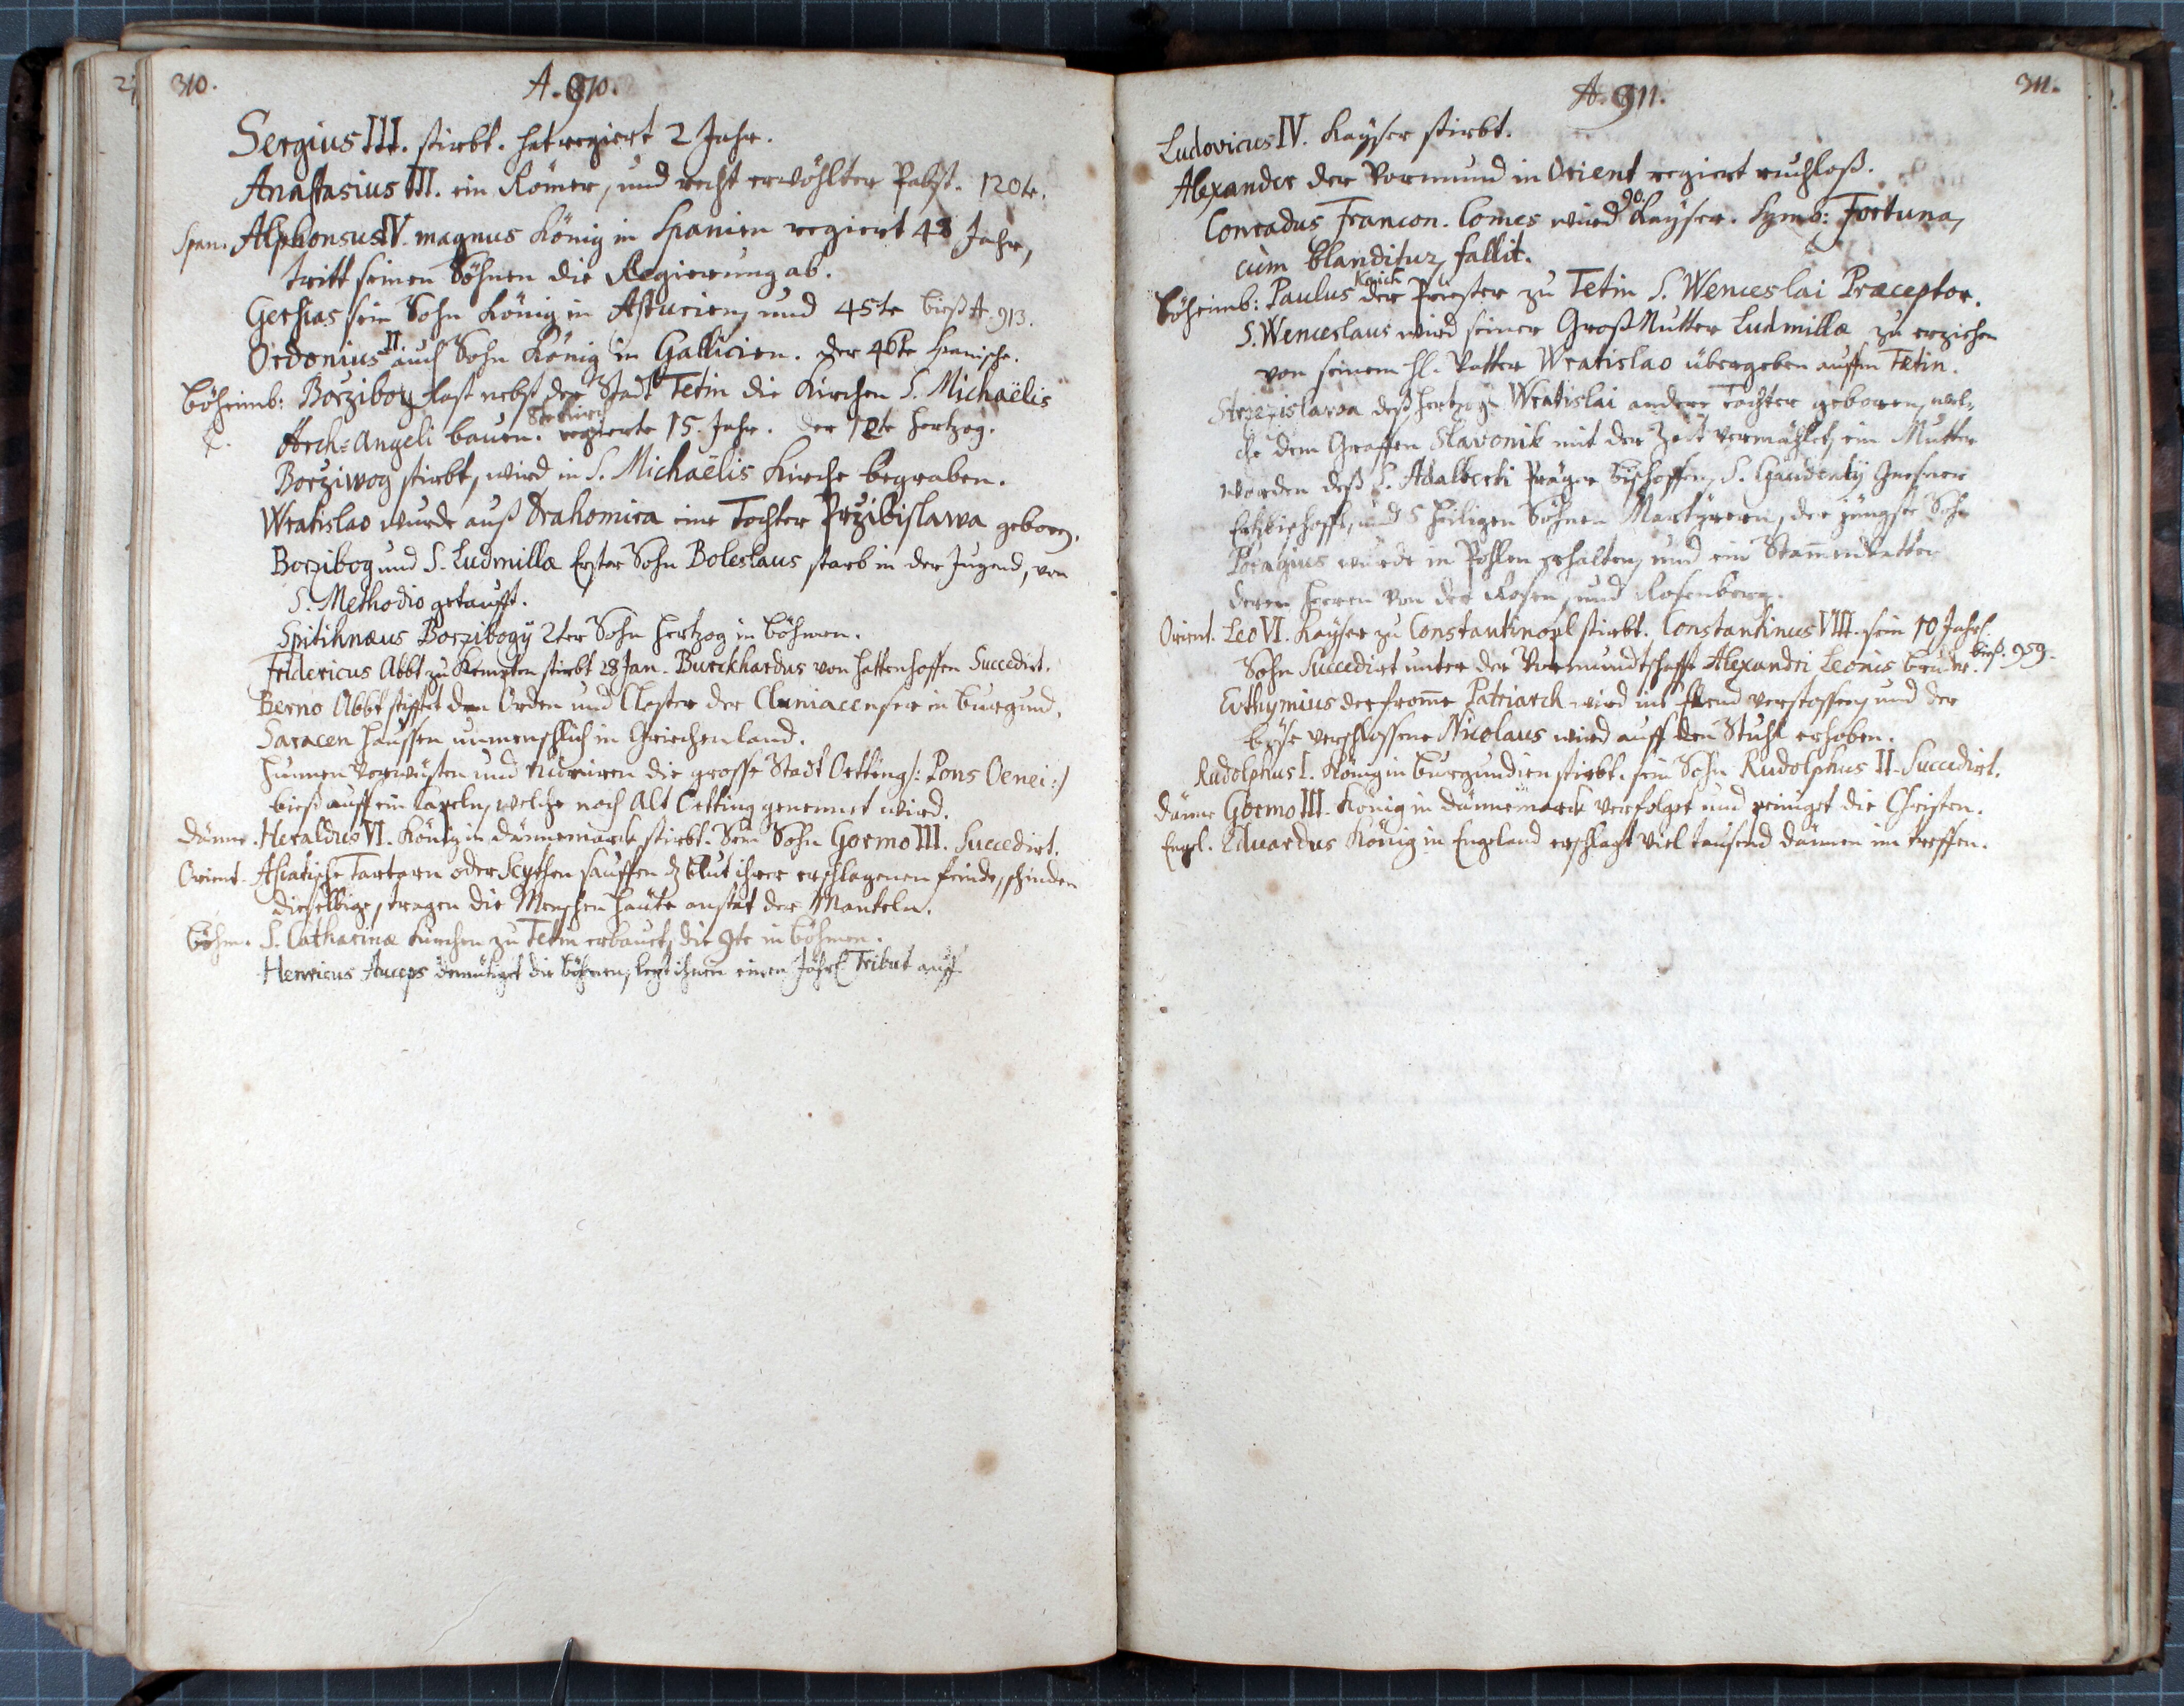 310.
A. 910.
Sergius III. stirbt. hat regiert 2 Jahr.
Anastasius III. ein Römer, und recht erwöhlter Pabst. 120te.
Span. Alphonsus IV. magnus König in Spanien regiert 48 Jahr,
tritt seinen Söhnen die Regierung ab.
Gersias sein Sohn König in Asturien, und 45te bieß A. 913.
Ordonius II. auch Sohn König in Gallicien. der 46te Spanische.
Böheimb: Borzibog last nebst der Stadt Tetin die Kirchen S. Michaëlis
Arch-Angeli bauen. regierte 15 Jahr. der 12te Hertzog.
Borziwog stirbt, wird in S. Michaëlis Kirche begraben.
Wratislao wurde auß Drahomira eine Tochter Przibislawa geboren.
Borzibog und S. Ludmillæ Erster Sohn Boleslaus starb in der Jugend, von
S. Methodio getaufft.
Spitihnæus Borzibogÿ 2ter Sohn Hertzog in Böhmen.
Fridericus Abbt zu Kempten stirbt 28 Jan. Burckhardus von Hattenhoffen Succedirt.
Berno Abbt stifftet den Orden und Closter der Cluniacenser in Burgund.
Saracen Haussen unmenschlich in Griechenland.
Hunnen verwüsten und ruiniren die grosse Stadt Oetting /: Pons Oenei :/
bieß auff ein Capeln, welche noch Alt Oetting genennet wird.
Dänne. Heraldus VI. König in Dännemarck stirbt. Sein Sohn Gormo III. Succedirt.
Orient. Asiatische Tartarn oder Scythen sauffen dz Blut ihrer erschlagenen feinde, schinden
dieselbige, tragen die Menschen Häute anstat der Manteln.
Böhm. S. Catharinæ Kirchen zu Tetin erbauet, die 9te in Böhmen.
Henricus Auceps demütiget die Böhmen, legt ihnen einen Jährl. Tribut auff.
A. 911.
311.
Ludovicus IV. Kayser stirbt.
Alexander der Vormund in Orient regiert ruchloß.
Conradus Francon. Comes wird 90. Kayser. Symb: Fortuna,
cùm blanditur, fallit.
Böheimb: Paulus Kaich der Priester zu Tetin S. Wenceslai Præceptor.
S. Wenceslaus wird seiner GroßMutter Ludmillæ zu erziehen
von seinem Hl. Vatter Wratislao übergeben auffm Tetin.
Strzezislawa deß Hertzogs Wratislai andere Tochter geboren, wel-
che dem Graffen Slavonik mit der Zeit vermählet, ein Mutter
worden deß S. Adalberti Prager Bischoffen, S. Gaudentÿ Gnesner
Ertzbischoffs, und 5 heiligen Söhnen Martÿrern, der jüngste Sohn
Poragius wurde in Pohlen erhalten, und ein Stammenvatter
deren Herren von der Rosen, und Rosenberg.
Orient. Leo VI. Kayser zu Constantinopl stirbt. Constantinus VIII. sein 10 Jähr.
Sohn Succedirt unter der Vormundtschafft Alexandri Leonis bruder. bieß. 959.
Euthymius der fromme Patriarch wird ins Elend verstossen, und der
böse verschlossene Nicolaus wird auff den Stuhl erhoben.
Rudolphus I. König in Burgundien stirbt. sein Sohn Rudolphus II. Succedirt.
Dänne Gormo III. König in Dännemarck verfolget und peiniget die Christen.
Engel. Eduardus König in Engeland erschlagt viel tausend Dännen im treffen.